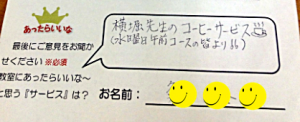 あったらいいな
最後にご意見をお聞か
せください ※必須
教室にあったらいいな～
と思う『サービス』は?
横堀先生のコーヒーサービス
(水曜日午前コースの皆より)
お名前：